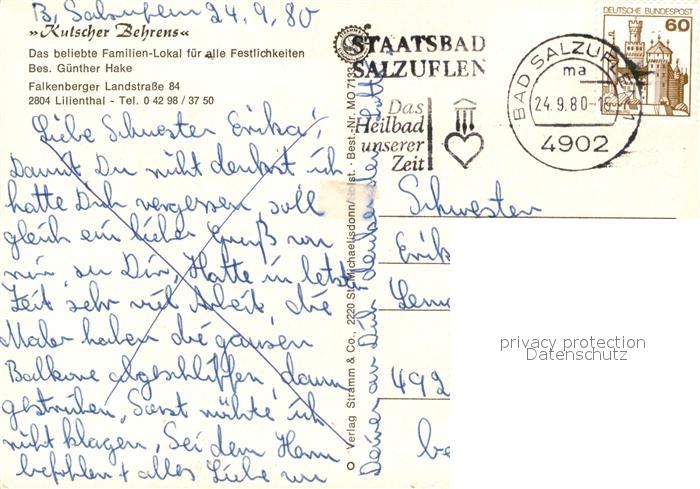 B, Salzuflen 24.9.80
»Kutscher Behrens«
Das beliebte Familien-Lokal für alle Festlichkeiten
Bes. Günther Hake
Falkenberger Landstraße 84
2804 Lilienthal - Tel. 0 42 98 / 37 50
Liebe Schwester Erika!
Damit Du nicht denkst ich
hatte Dich vergessen, soll
gleich ein lieber Gruß von
mir zu Dir, Hatte in letzter
Zeit sehr viel Arbeit, die
Maler haben die ganzen
Balkone abgeschliffen, dann
gestrichen, Sonst möchte ich
nicht klagen, Sei dem Herrn
befohlen + alles Liebe von
Deiner an Dich denkender
Verlag Stramm & Co., 2220 St. Michaelisdonn/Holst. · Best.-Nr. MO 7133
STAATSBAD
SALZUFLEN
Das
Heilbad
unserer
Zeit
BAD SALZUFLEN 1
ma
24.9.80-
4902
DEUTSCHE BUNDESPOST
60
Schwester
Erik
492
privacy protection
Datenschutz